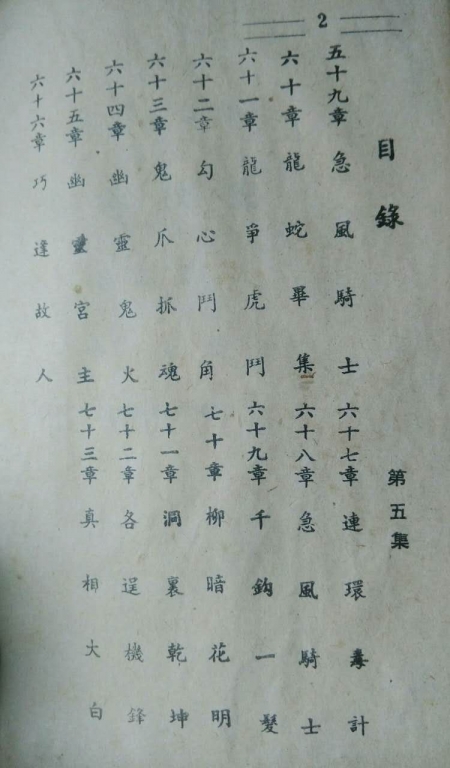 2
目錄
第五集
五十九章 急風騎士
六十章 龍蛇畢集
六十一章 龍爭虎鬥
六十二章 勾心鬥角
六十三章 鬼爪抓魂
六十四章 幽靈鬼火
六十五章 幽靈宮主
六十六章 巧逢故人
六十七章 連環毒計
六十八章 急風騎士
六十九章 千鈎一髮
七十章 柳暗花明
七十一章 洞裏乾坤
七十二章 各逞機鋒
七十三章 真相大白